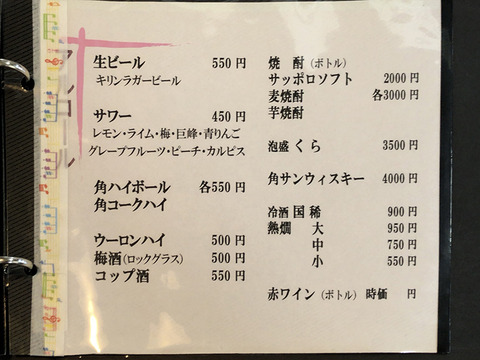 アルコール
生ビール 550 円
キリンラガービール
サワー 450 円
レモン・ライム・梅・巨峰・青りんご
グレープフルーツ・ピーチ・カルピス
角ハイボール 各550 円
角コークハイ
ウーロンハイ 500 円
梅酒(ロックグラス) 500 円
コップ酒 550 円
焼 酎(ボトル)
サッポロソフト 2000 円
麦焼酎 各3000 円
芋焼酎
泡盛 くら 3500 円
角サンウィスキー 4000 円
冷酒 国 稀 900 円
熱燗 大 950 円
中 750 円
小 550 円
赤ワイン(ボトル) 時価 円